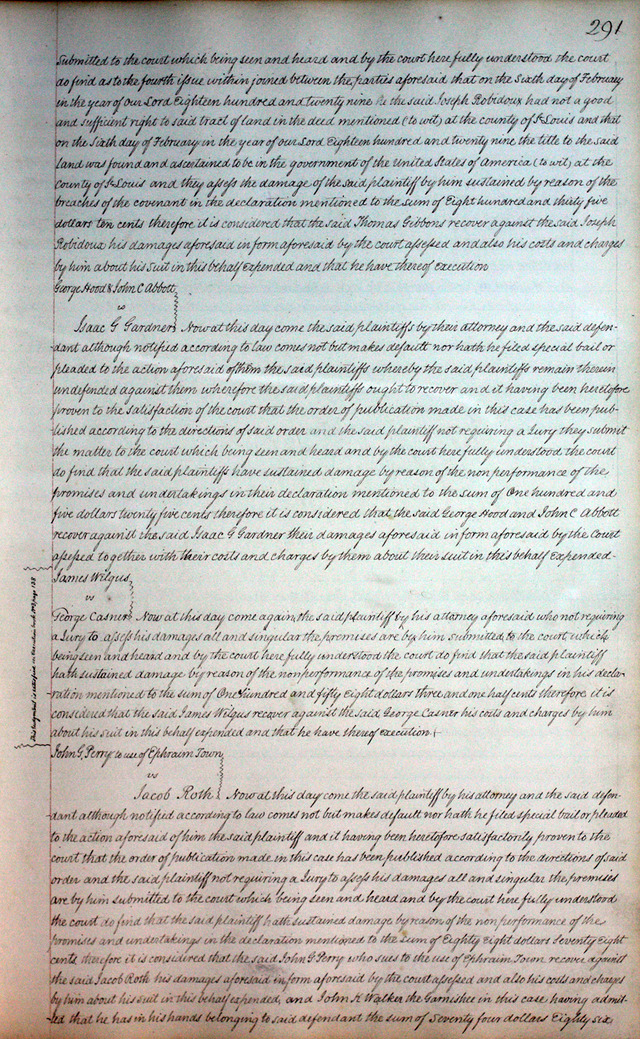 291
Submitted to the court which being seen and heard and by the court here fully understood the court
do find as to the fourth issue within joined between the parties aforesaid that on the Sixth day of February
in the year of our Lord Eighteen hundred and twenty nine he the said Joseph Robidoux had not a good
and sufficient right to said tract of land in the deed mentioned (to wit) at the county of St Louis and that
on the Sixth day of February in the year of our Lord Eighteen hundred and twenty nine the title to the said
land was found and ascertained to be in the government of the United States of America (to wit) at the
county of St Louis and they assess the damage of the said plaintiff by him sustained by reason of the
breaches of the covenant in the declaration mentioned to the sum of Eight hundred and thirty five
dollars ten cents therefore it is considered that the said Thomas Gibbons recover against the said Joseph
Robidoux his damages aforesaid in form aforesaid by the court assessed and also his costs and charges
by him about his suit in this behalf expended and that he have thereof execution
George Hood & John C Abbott
vs
Isaac G Gardner Now at this day come the said plaintiffs by their attorney and the said defen-
dant although notified according to law comes not but makes default nor hath he filed special bail or
pleaded to the action aforesaid of them the said plaintiffs whereby the said plaintiffs remain therein
undefended against them wherefore the said plaintiffs ought to recover and it having been heretofore
proven to the satisfaction of the court that the order of publication made in this case has been pub-
lished according to the directions of said order and the said plaintiff not requiring a Jury they submit
the matter to the court which being seen and heard and by the court here fully understood the court
do find that the said plaintiffs have sustained damage by reason of the non performance of the
promises and undertakings in their declaration mentioned to the sum of One hundred and
five dollars twenty five cents therefore it is considered that the said George Hood and John C Abbott
recover again'd the said Isaac G Gardner their damages aforesaid in form aforesaid by the Court
assessed together with their costs and charges by them about their suit in this behalf expended
James Wilgus
vs
George Casner Now at this day come again the said plaintiff by his attorney aforesaid who not requiring
a Jury to assess his damages all and singular the premises are by him submitted to the court which
being seen and heard and by the court here fully understood the court do find that the said plaintiff
hath sustained damage by reason of the nonperformance of the promises and undertakings in his decla-
ration mentioned to the sum of One hundred and fifty Eight dollars three and one half cents therefore it is
considered that the said James Wilgus recover against the said George Casner his costs and charges by him
about his suit in this behalf expended and that he have thereof execution
This judgment is satisfied in Execution book page
John G. Perry to use of Ephraim Town
vs
Jacob Roth Now at this day come the said plaintiff by his attorney and the said defen-
dant although notified according to law comes not but makes default nor hath he filed special bail or pleaded
to the action aforesaid of him the said plaintiff and it having been heretofore satisfactorily proven to the
court that the order of publication made in this case has been published according to the directions of said
order and the said plaintiff not requiring a Jury to assess his damages all and singular the premises
are by him submitted to the court which being seen and heard and by the court here fully understood
the court do find that the said plaintiff hath sustained damage by reason of the non performance of the
promises and undertakings in the declaration mentioned to the Sum of Eighty Eight dollars Seventy Eight
cents, therefore it is considered that the said John G Perry who sues to the use of Ephraim Town recover against
the said Jacob Roth his damages aforesaid in form aforesaid by the court assessed and also his costs and charges
by him about his suit in this behalf expended, and John K Walker the Garnishee in this case having admit-
ted that he has in his hands belonging to said defendant the sum of Seventy four dollars Eighty six